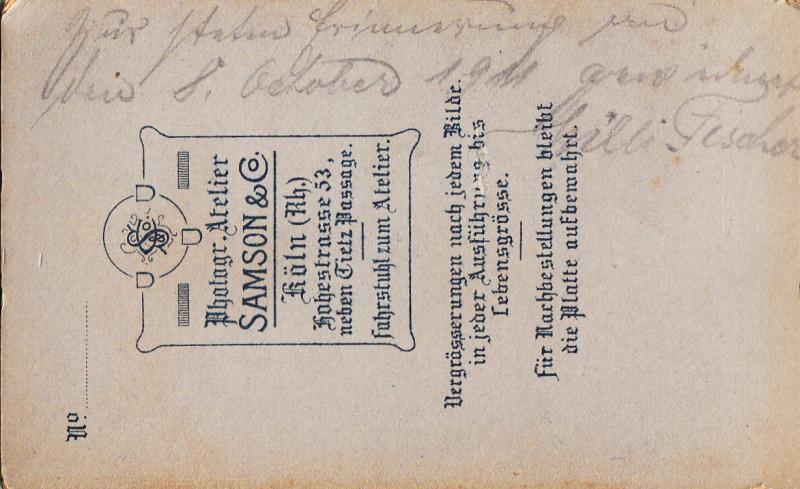 Zur steten Erinnerung an
den 8. October 1911 gewidmet
Willi Fischer
Nº
Photogr. Atelier
SAMSON & Co.
Köln (Rh.)
Hohestrasse 53,
neben Tietz Passage.
Fahrstuhl zum Atelier.
Vergrösserungen nach jedem Bilde.
in jeder Ausführung bis
Lebensgrösse.
Für Nachbestellungen bleibt
die Platte aufbewahrt.